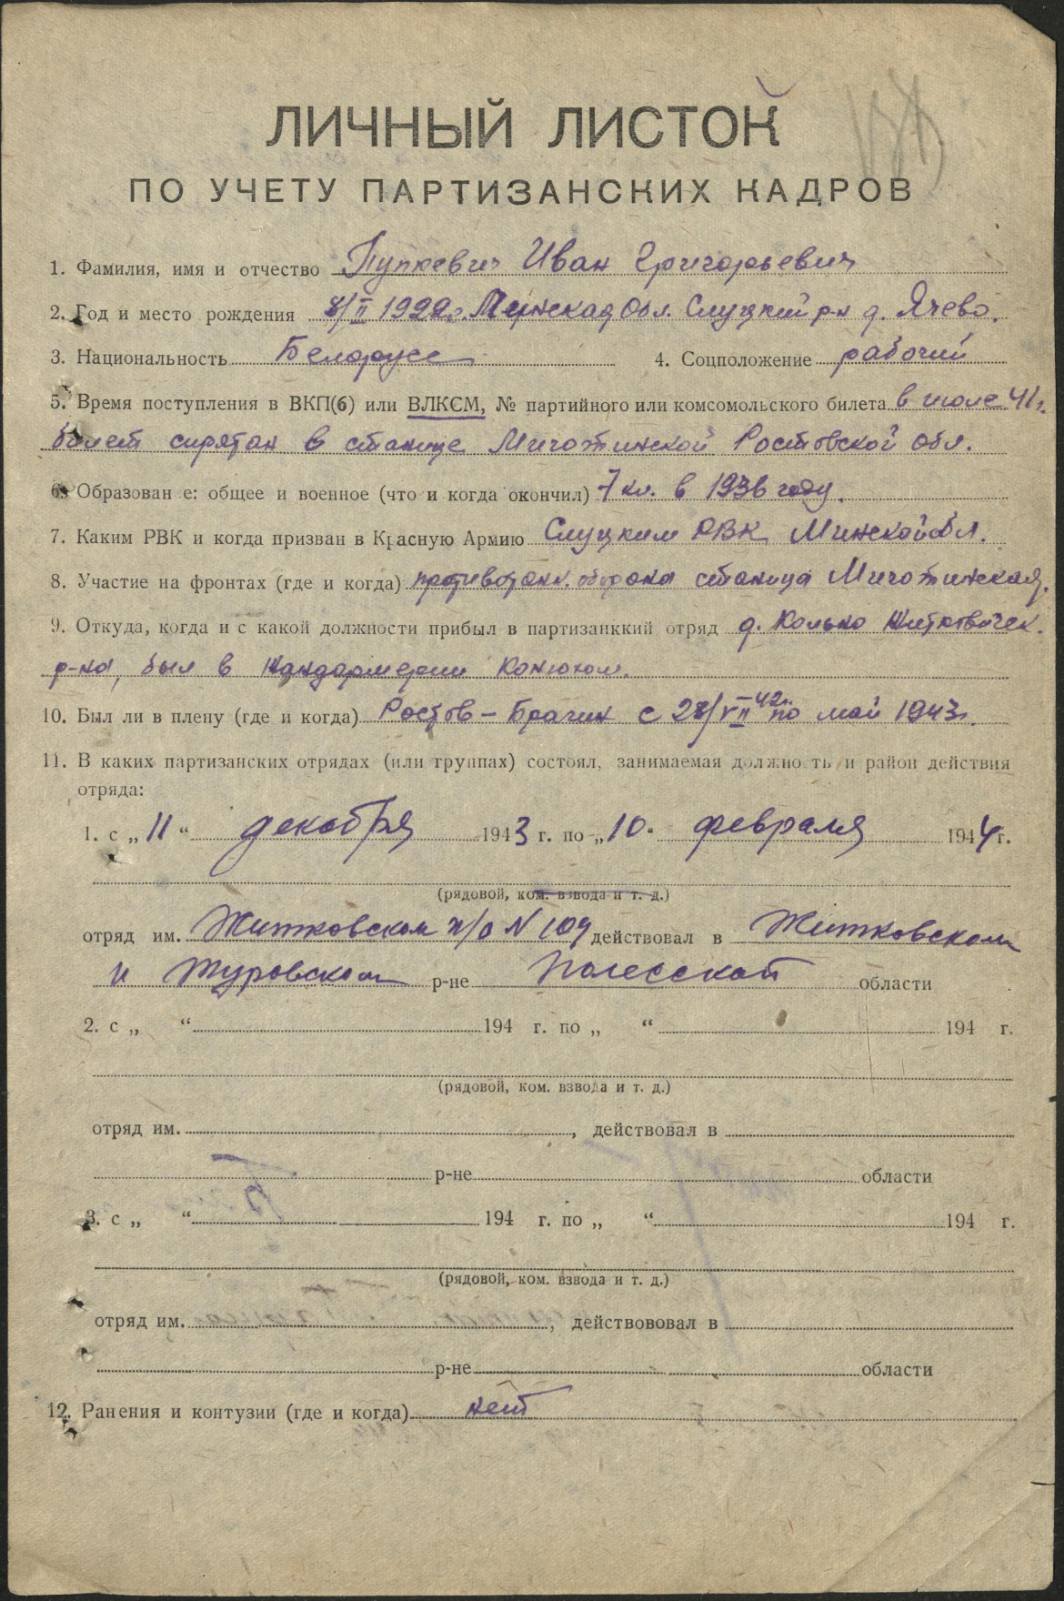 ЛИЧНЫЙ ЛИСТОК
ПО УЧЕТУ ПАРТИЗАНСКИХ КАДРОВ
1. Фамилия, имя и отчество Пупкевич Иван Григорьевич
2. Год и место рождения 8/II 1922г. Минская Обл. Слуцкий р-н д. Ячево.
3. Национальность Белорусс 4. Соцположение рабочий
5. Время поступления в ВКП(б) или ВЛКСМ, № партийного или комсомольского билета в июле 41г.
билет спрятан в станице Мичотинской Ростовской обл.
6. Образован е: общее и военное (что и когда окончил) 7 кл. в 1936 году.
7. Каким РВК и когда призван в Красную Армию Слуцким РВК Минской Обл.
8. Участие на фронтах (где и когда) противотанк. оборона станица Мичотинская.
9. Откуда, когда и с какой должности прибыл в партизанккий отряд д. Кольно Житковичск.
р-на, был в жандармерии конюхом.
10. Был ли в плену (где и когда) Ростов – Брагин с 28/VII 42г. по май 1943г.
11. В каких партизанских отрядах (или группах) состоял, занимаемая должно ть и район действия
отряда:
1. с „ 11 “ декабря 1943 г. по „ 10. февраля 1944 г.
(рядовой, ком. взвода и т. д.)
отряд им. Житковском п/о N 109 действовал в Житковском
и Туровском р-не Полесской области
2. с „ “ 194 г. по „ “ 194 г.
(рядовой, ком. взвода и т. д.)
отряд им. , действовал в
р-не области
3. с „ “ 194 г. по „ “ 194 г.
(рядовой, ком. взвода и т. д.)
отряд им. , действововал в
р-не области
12. Ранения и контузии (где и когда) нет